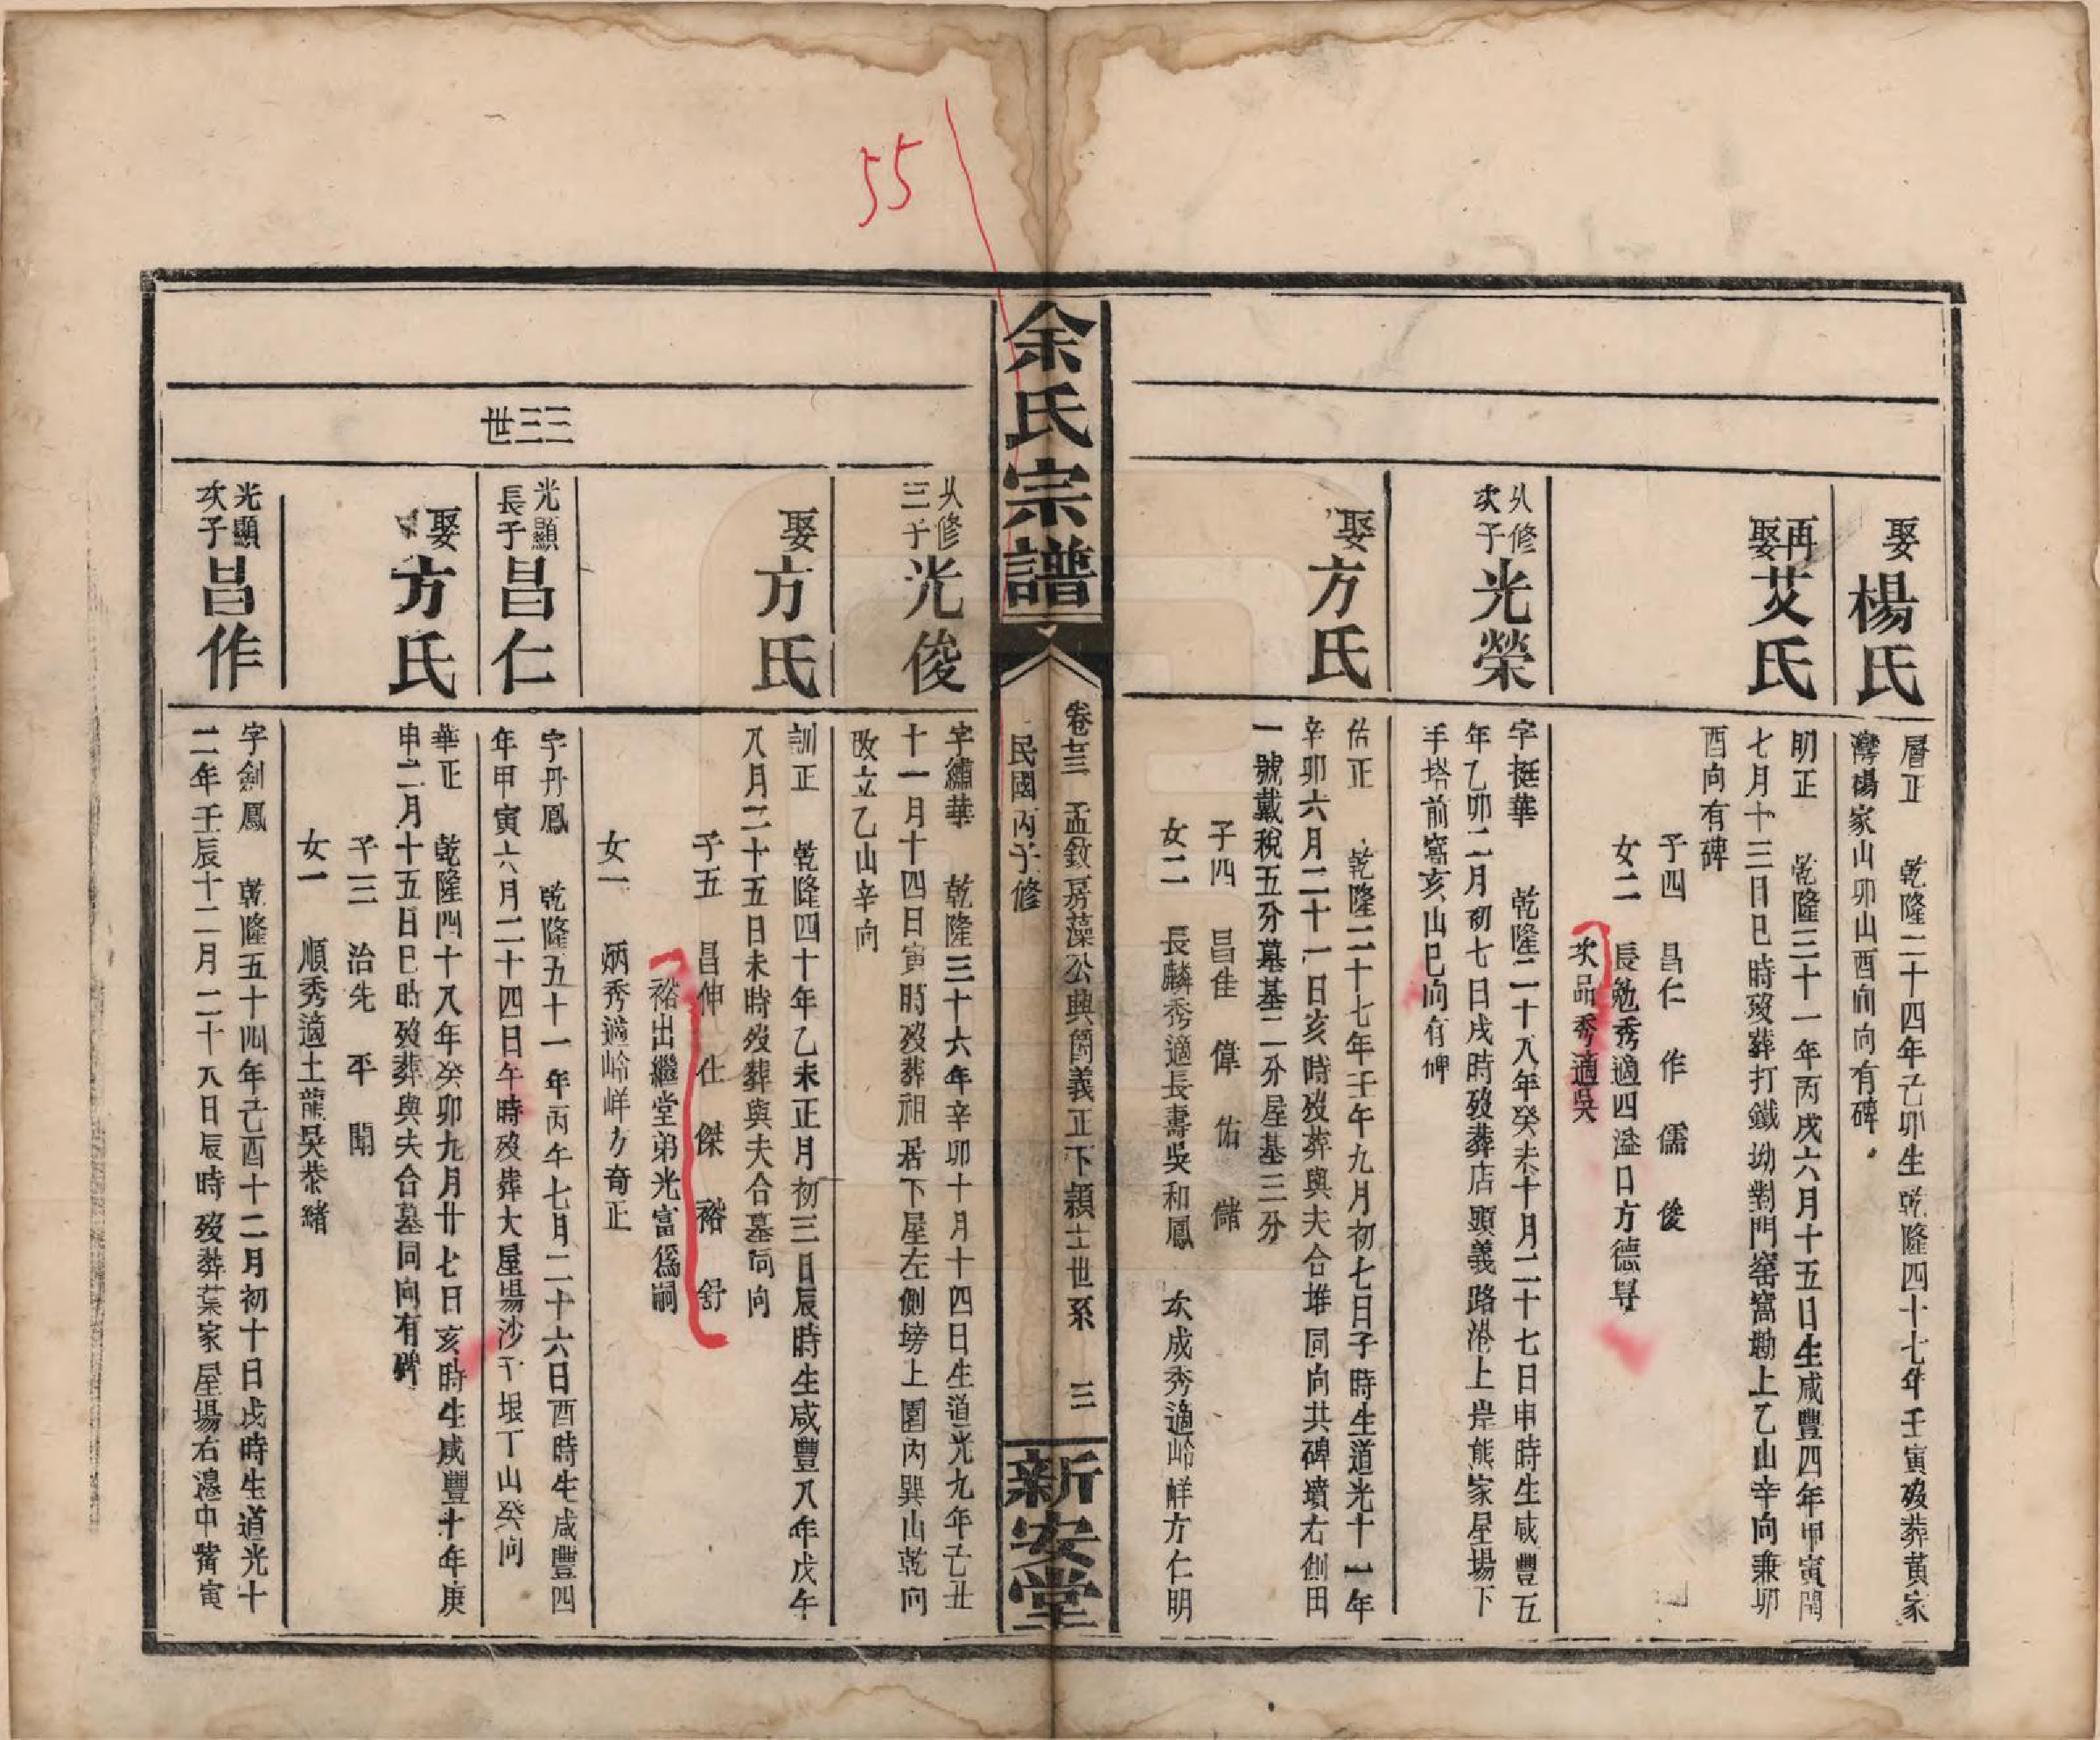 娶楊氏
層正 乾隆二十四年己卯生乾隆四十七年壬寅歿葬黃家
灣楊家山卯山酉向向有碑
再娶艾氏
明正 乾隆三十一年丙戌六月十五日生咸豐四年甲寅閏
七月十三日巳時歿葬打鐵坳對門窰窩勘上乙山辛向兼卯
酉向有碑
子四 昌仁 作 儒 俊
女二 長勉秀適四溢口方德㝵
次品秀適吳
从修次子光榮
字挺華 乾隆二十八年癸未十月二十七日申時生咸豐五
年乙卯二月初七日戌時歿葬店頭義路港上岸熊家屋場下
手塔前窩亥山巳向有碑
娶方氏
佑正 乾隆二十七年壬午九月初七日子時生道光十一年
辛卯六月二十一日亥時歿葬與夫合堆同向共碑墳右側田
一號戴稅五分墓基二分屋基三分
子四 昌佳 偉 佑 儲
女二 長麟秀適長壽吳和鳳 次成秀適岭峰方仁明
余氏宗譜
卷七三 孟敘房藻公興爵義正下穎士世系 三
民國丙子修
新安堂
从修三子光俊
字繡華 乾隆三十六年辛卯十月十四日生道光九年己丑
十一月十四日寅時歿葬祖居下屋左側塝上園內巽山乾向
改立乙山辛向
娶方氏
訓正 乾隆四十年乙未正月初三日辰時生咸豐八年戊午
八月二十五日未時歿葬與夫合墓同向
子五 昌伸 仕 傑 裕 舒
裕出繼堂弟光富爲嗣
女一 炳秀適岭峰方奇正
三三世
光顯長子昌仁
字丹鳳 乾隆五十一年丙午七月二十六日酉時生咸豐四
年甲寅六月二十四日午時歿葬大屋場沙下垠丁山癸向
娶方氏
華正 乾隆四十八年癸卯九月廿七日亥時生咸豐十年庚
申二月十五日巳時歿葬與夫合墓同向有碑
子三 治先 平 開
女一 順秀適土龍吳恭緒
光顯次子昌作
字劍鳳 乾隆五十四年己酉十二月初十日戌時生道光十
二年壬辰十二月二十八日辰時歿葬葉家屋場右邊中嘴寅
55